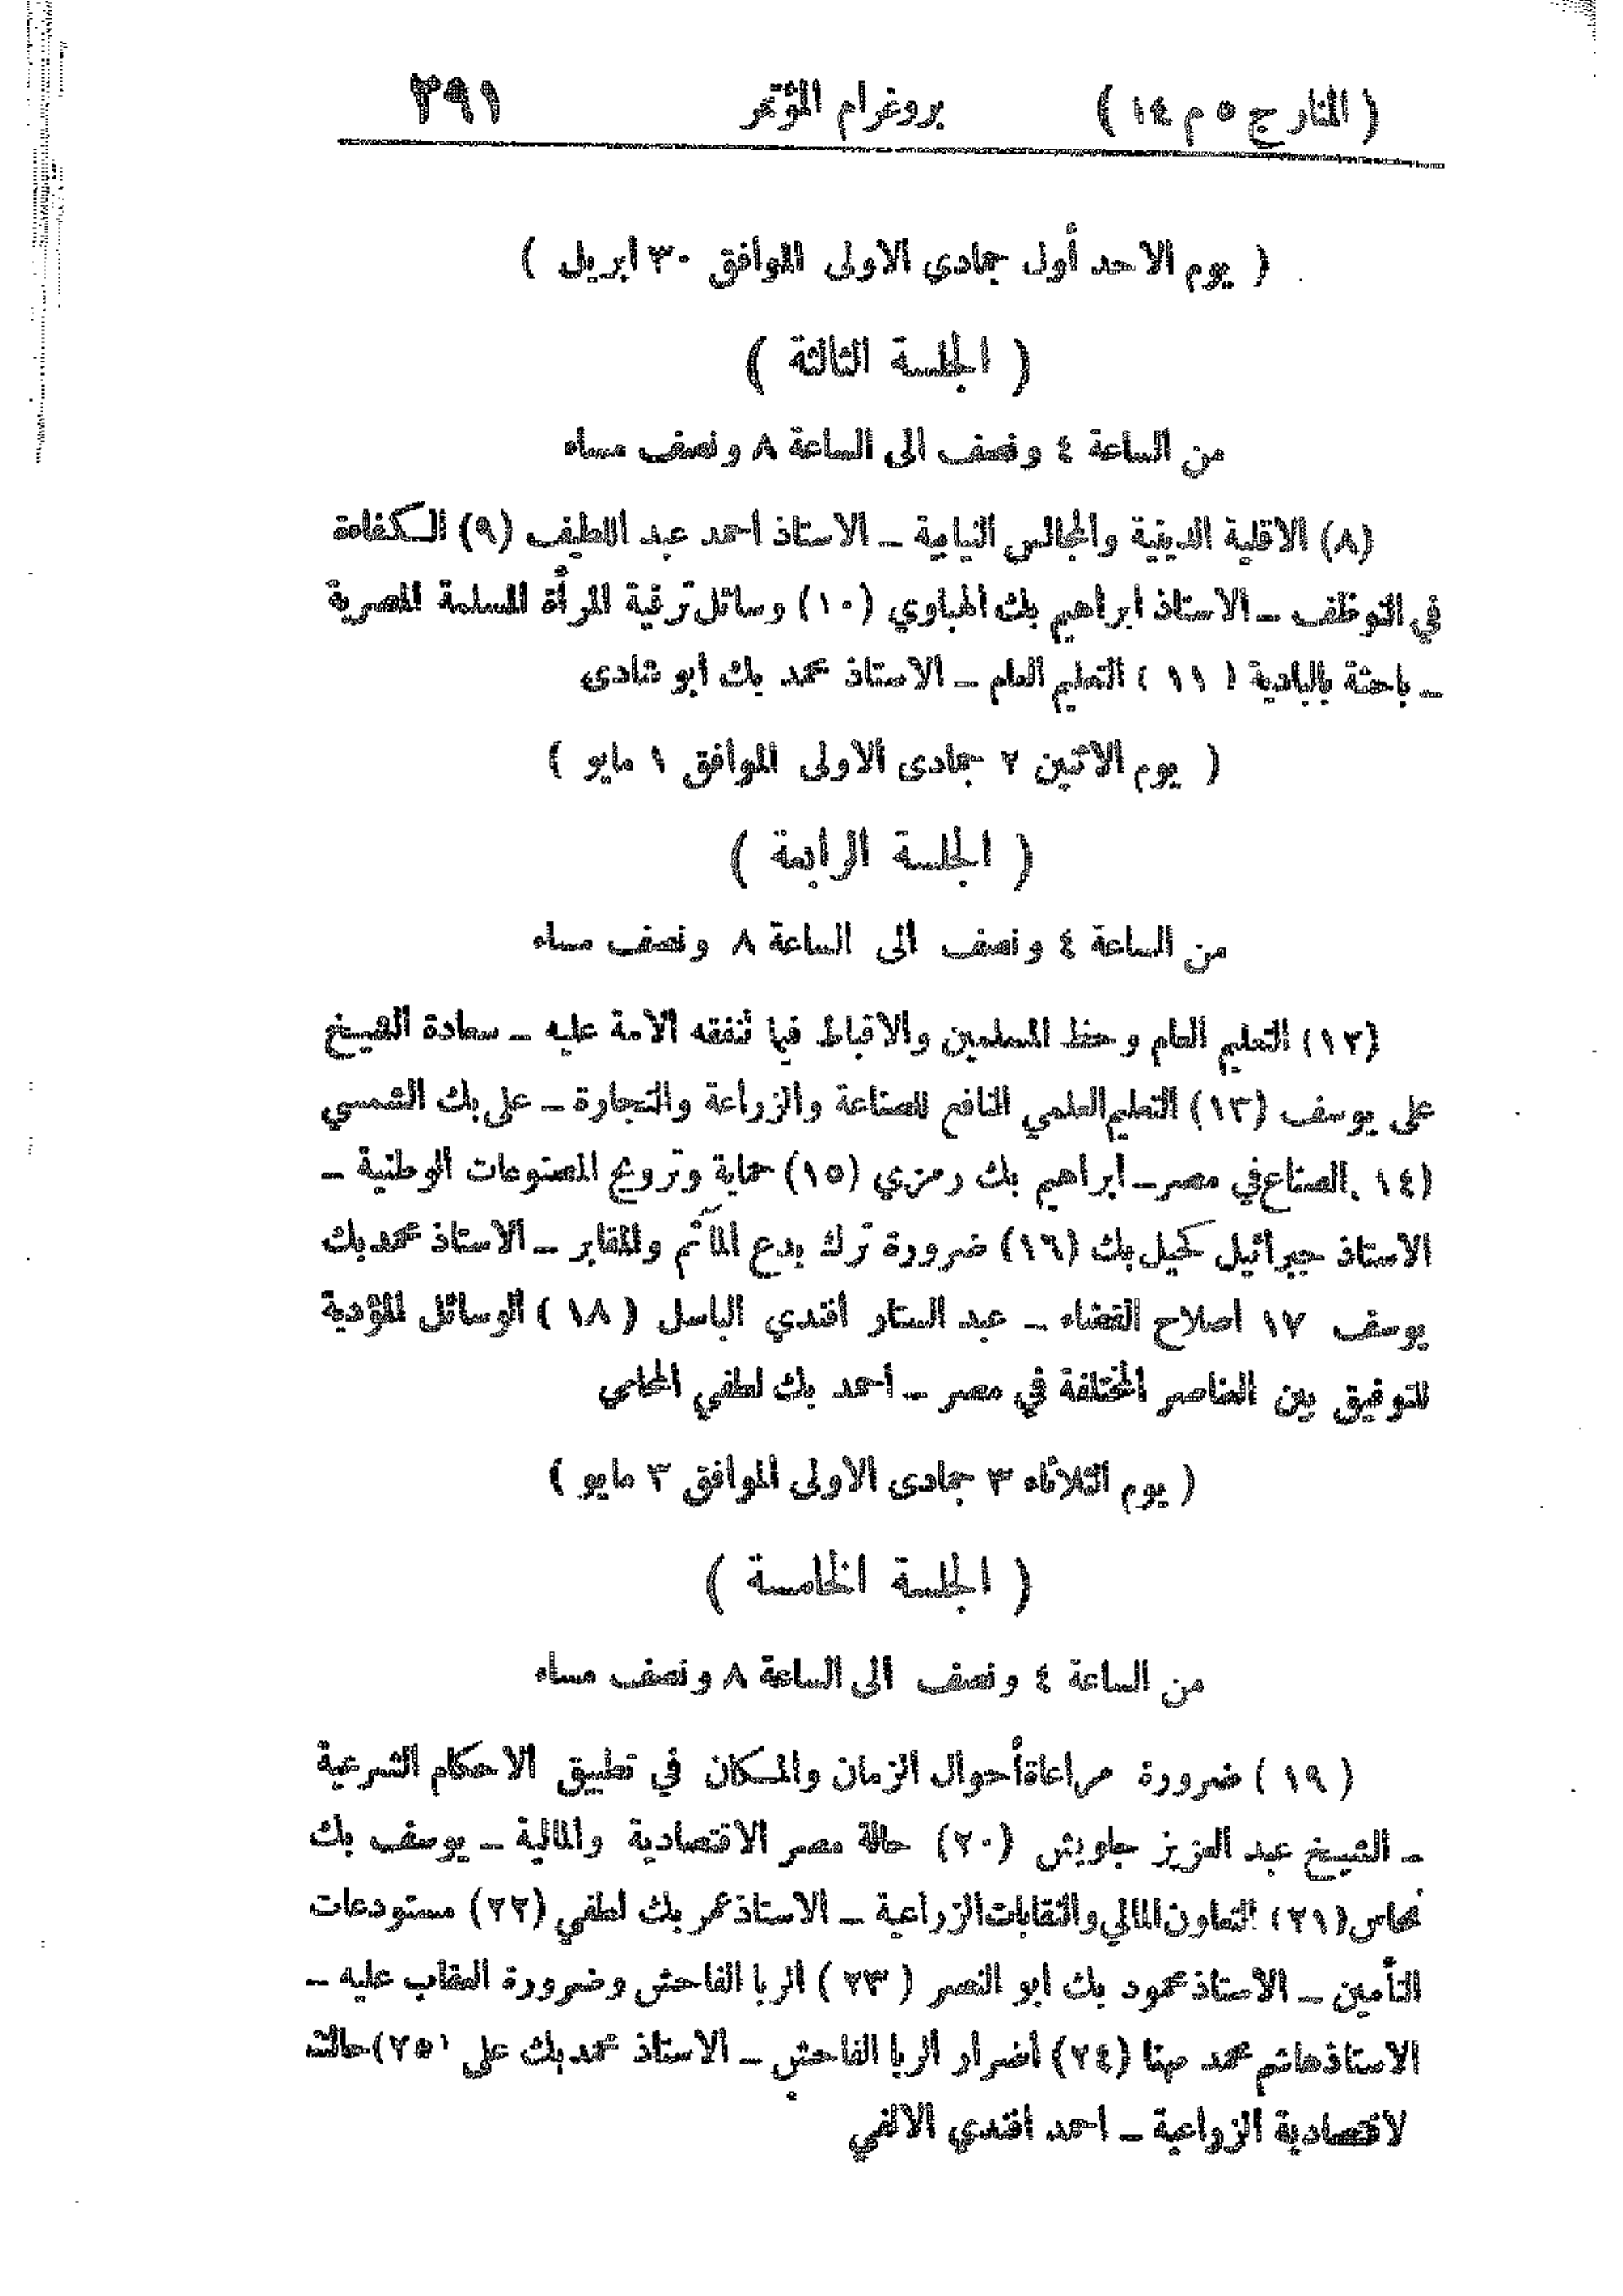 ( المنار ج ٥ م ١٤ ) بروغرام المؤتمر ٣٩١
( يوم الاحد أول جمادى الاولى الموافق ٣٠ ابريل )
( الجلسة الثالثة )
من الساعة ٤ ونصف الى الساعة ٨ ونصف مساء
(٨) الاقلية الدينية والمجالس النيابية ــ الاستاذ احمد عبد اللطيف (٩) الكفاءة
في التوظف ــ الاستاذ ابراهيم بك الهلباوي (١٠) وسائل ترقية المرأة المسلمة المصرية
ــ باحثة بالبادية ( ١١ ) التعليم العام ــ الاستاذ محمد بك ابو شادى
( يوم الاثنين ٢ جمادى الاولى الموافق ١ مايو )
( الجلسة الرابعة )
من الساعة ٤ ونصف الى الساعة ٨ ونصف مساء
(١٢) التعليم العام وحظ المسلمين والاقباط فيما تنفقه الامة عليه ــ سعادة الشيخ
على يوسف (١٣) التعليم العلمي النافع للصناعة والزراعة والتجارة ــ على بك الشمسي
(١٤ . الصناع في مصر ــ ابراهيم بك رمزي (١٥) حماية وترويج المصنوعات الوطنية ــ
الاستاذ جبرائيل كحيل بك (١٦) ضرورة ترك بدع المآتم والمقابر ــ الاستاذ محمد بك
يوسف ١٧ اصلاح القضاء ــ عبد الستار افندي الباسل ( ١٨ ) الوسائل المؤدية
للتوفيق بين العناصر المختلفة في مصر ــ أحمد بك لطفي المحامي
( يوم الثلاثاء ٣ جمادى الاولى الموافق ٢ مايو )
( الجلسة الخامسة )
من الساعة ٤ ونصف الى الساعة ٨ ونصف مساء
( ١٩ ) ضرورة مراعاة أحوال الزمان والمكان في تطبيق الاحكام الشرعية
ــ الشيخ عبد العزيز جاويش (٢٠) حالة مصر الاقتصادية والمالية ــ يوسف بك
نحاس (٢١) التعاون المالي والنقابات الزراعية ــ الاستاذ عمر بك لطفي (٢٢) مستودعات
التأمين ــ الاستاذ محمود بك ابو النصر ( ٢٣ ) الربا الفاحش وضرورة العقاب عليه ــ
الاستاذ هاشم محمد مهنا (٢٤) أضرار الربا الفاحش ــ الاستاذ محمد بك على ٢٥) حالتنا
لاقتصادية الزراعية ــ احمد افندي الالفي